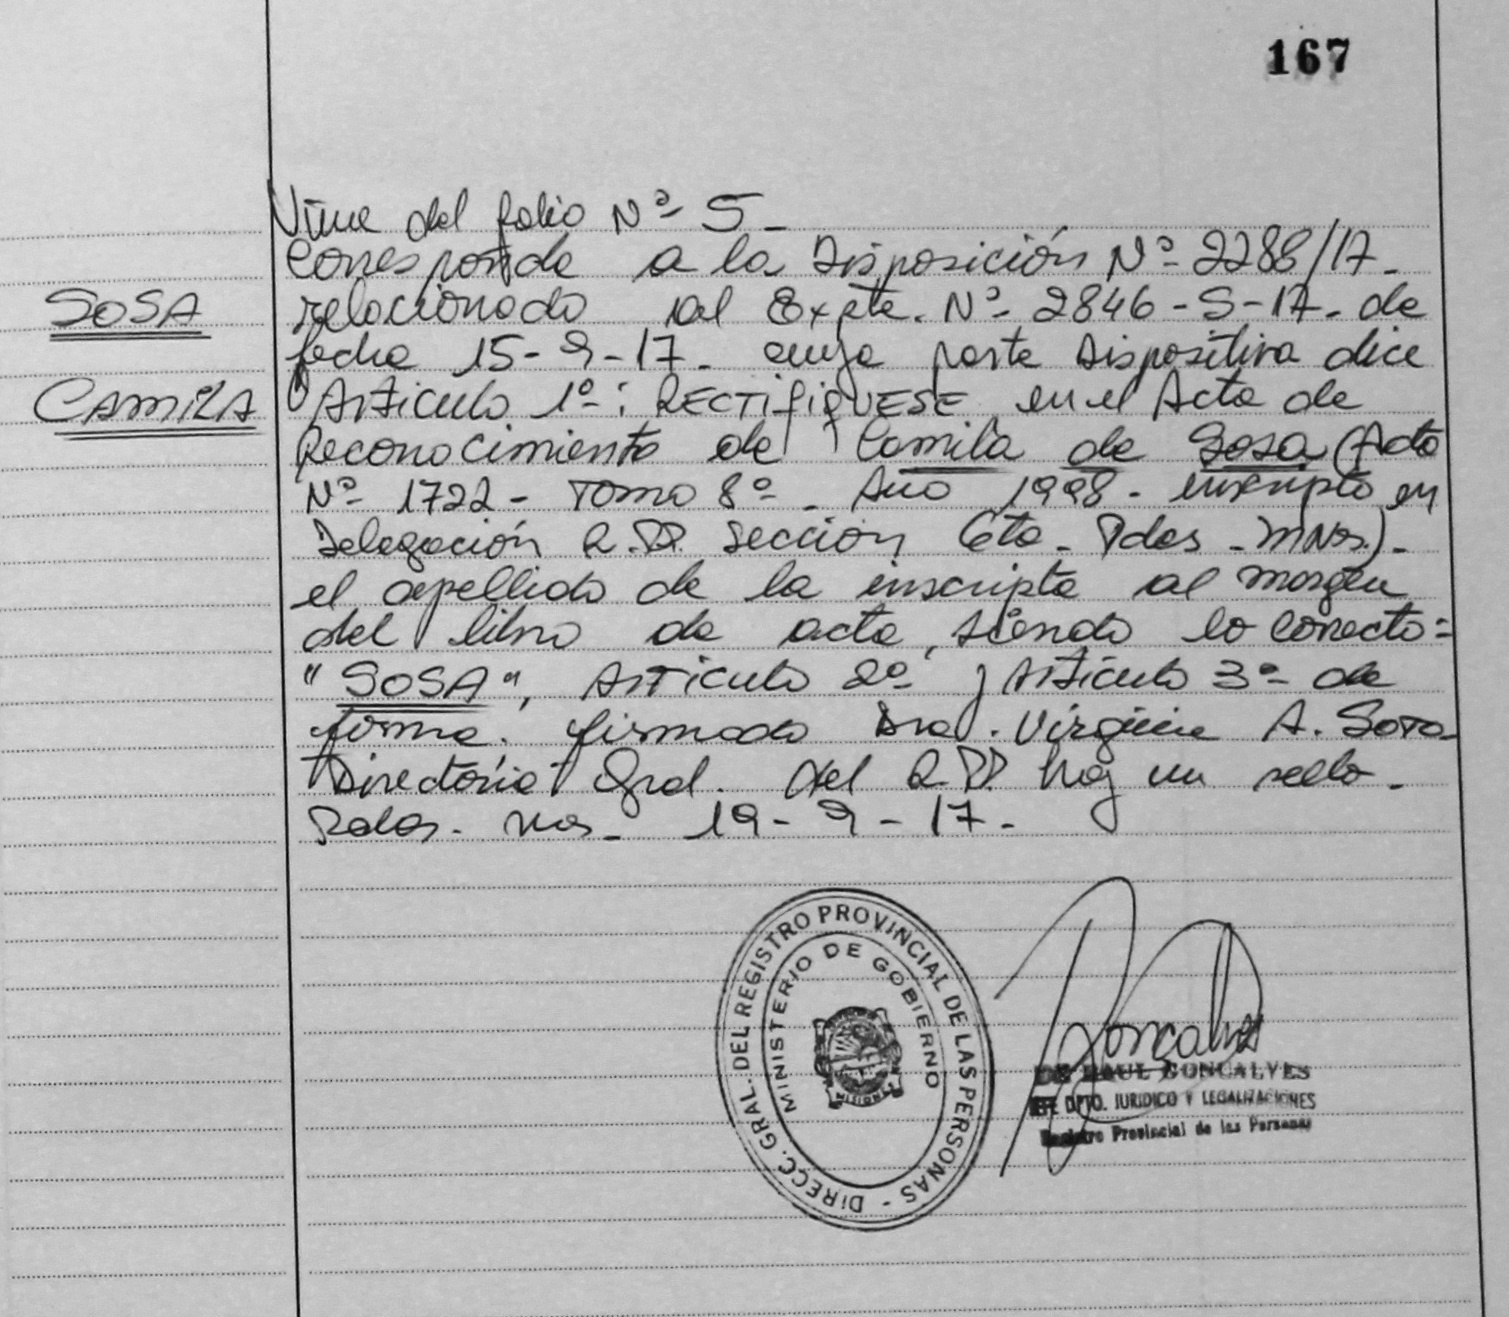 167
Viene del folio Nº 5 -
Corresponde a la Disposición Nº 2288/17.
relacionado al Expte. Nº 2846-S-17. de
SOSA
fecha 15-9-17. cuya parte Dispositiva dice
CAMILA
"Articulo 1º: RECTIFIQUESE en el Acta de
Reconocimiento de Camila de Sosa (Acta
Nº 1722 - Tomo 8º - Año 1998 - inscripto en
Delegación R.P.P. Sección 6ta. Pdas - MNes.) -
el apellido de la inscripta al margen
del libro de acta, siendo lo correcto =
"SOSA", Articulo 2º y Articulo 3º de
forma. firmado Dra. Virginia A. Soto
Directoria Gral. del R.P.P. hay un sello.
Pdas. Mnes. 19-9-17.
DIRECC. GRAL. DEL REGISTRO PROVINCIAL DE LAS PERSONAS -
MINISTERIO DE GOBIERNO
MISIONES
Goncalves
RAUL GONCALVES
JEFE DPTO. JURIDICO Y LEGALIZACIONES
Registro Provincial de las Personas